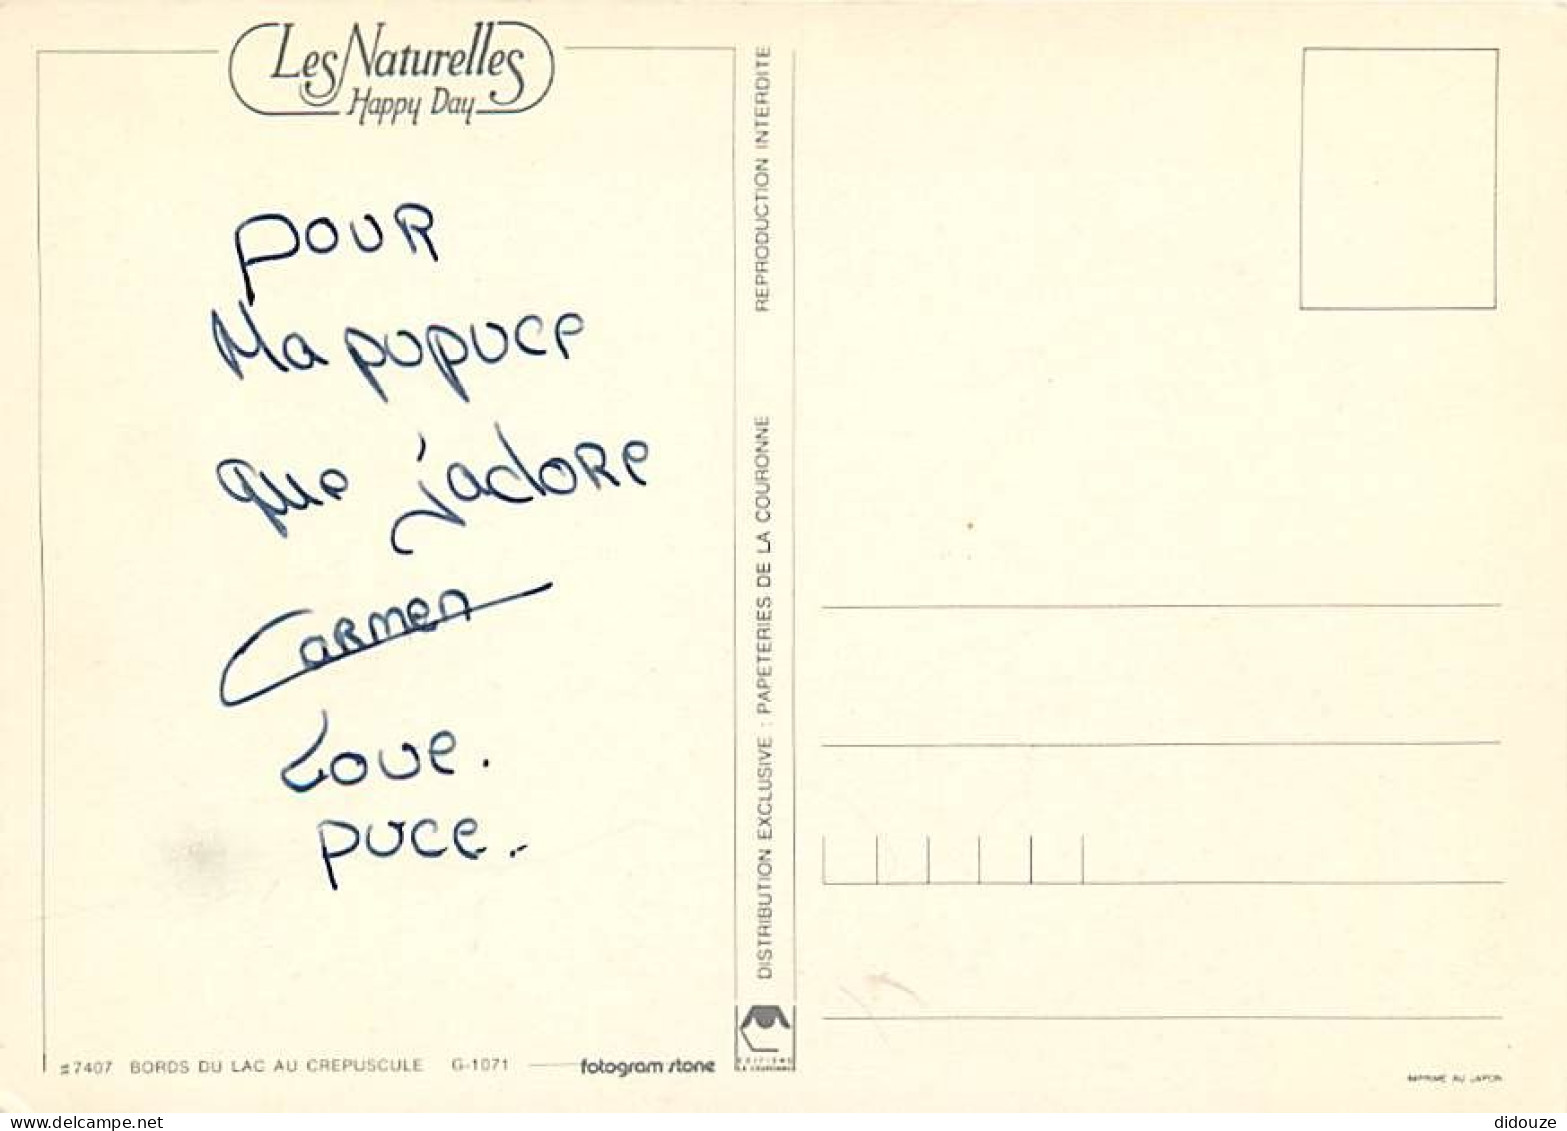 Les Naturelles
Happy Day
POUR
Ma pupuce
que j'adore
Carmen
Love.
puce..
#7407 BORDS DU LAC AU CREPUSCULE G-1071
fotogram stone
DISTRIBUTION EXCLUSIVE : PAPETERIES DE LA COURONNE
REPRODUCTION INTERDITE
EDITIONS
LA COURONNE
IMPRIMÉ AU JAPON
delcampe.net
didouze